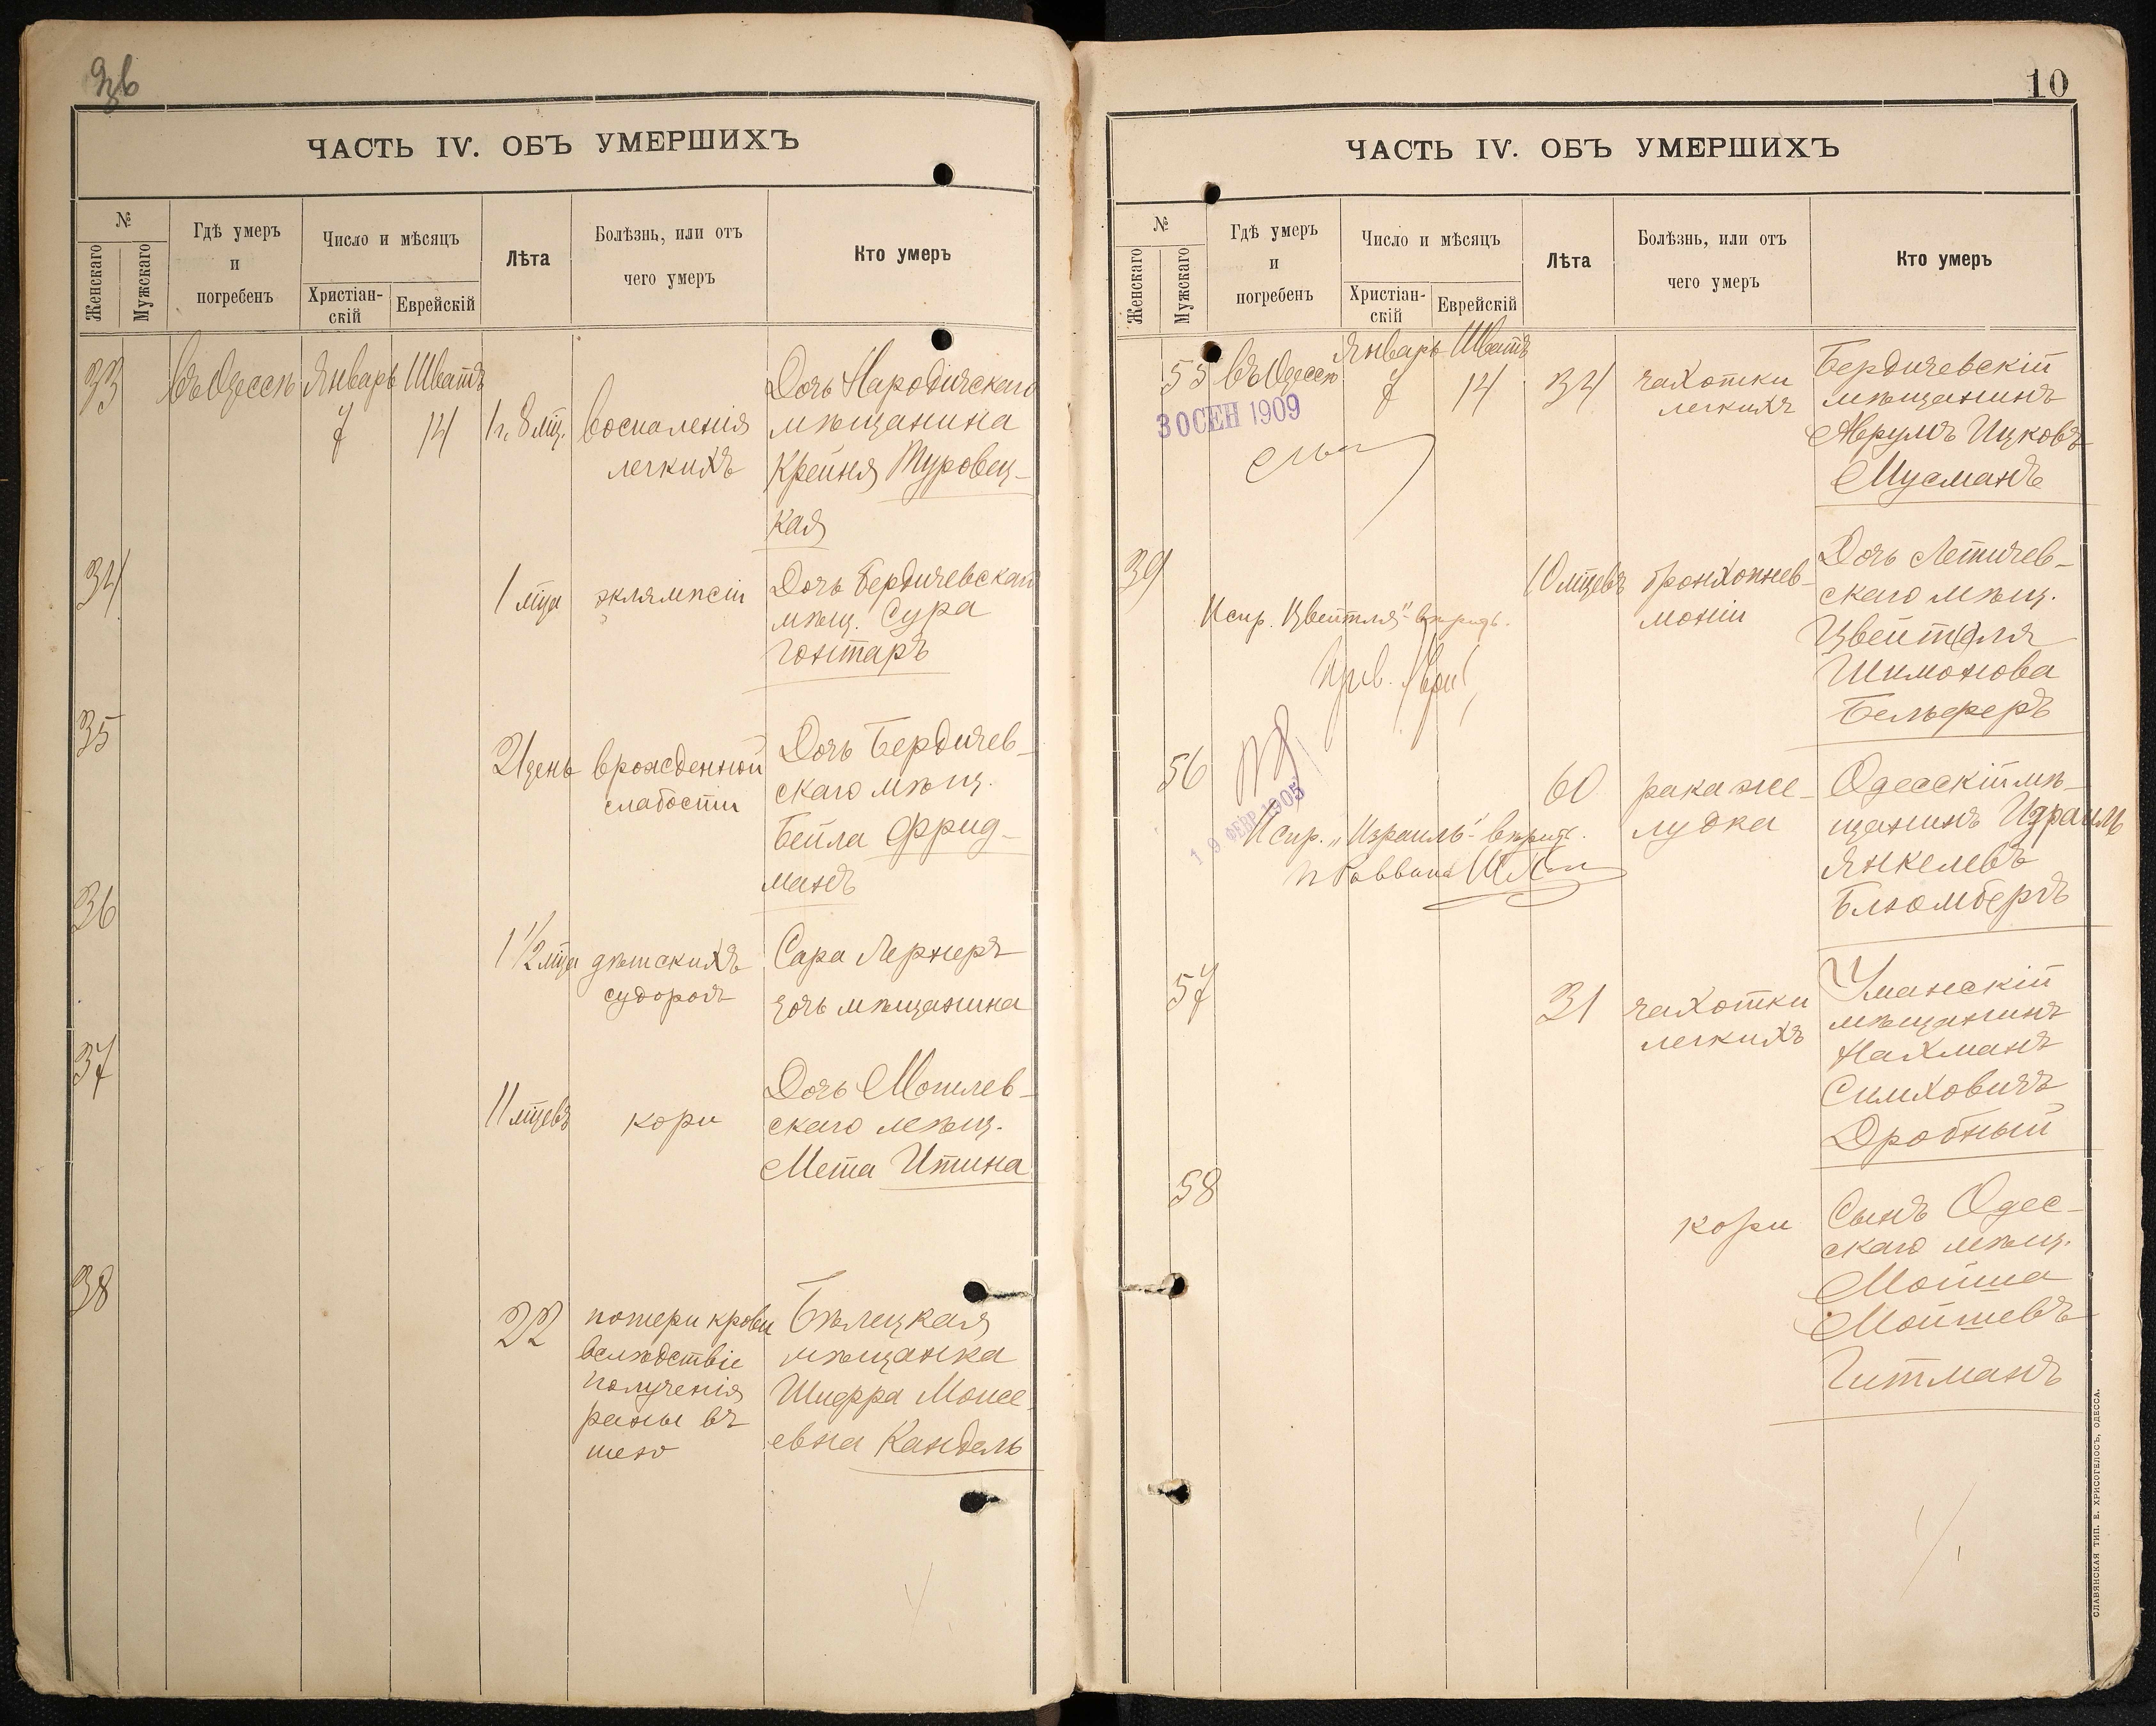 ЧАСТЬ IV. ОБЪ УМЕРШИХЪ
№
Женскаго
Мужскаго
Гдѣ умеръ
и
погребенъ
Число и мѣсяцъ
Христіан-
скій
Еврейскій
Лѣта
Болѣзнь, или отъ
чего умеръ
Кто умеръ
33 въ Одессѣ Январь Шватъ
7 14 1 г. 8 мц. воспаленія
легкихъ
Дочь Народичскаго
мѣщанина
Крейня Туровец-
кая
34
1 мца эклямпсіи
Дочь Бердичевскаго
мѣщ. Сура
Гонтаръ
35
21 день врожденной
слабости
Дочь Бердичев-
скаго мѣщ.
Бейла Фрид-
манъ
36
1 1/2 мца дѣтскихъ
судорогъ
Сара Лернеръ
дочь мѣщанина
37
11 мцевъ кори
Дочь Могилев-
скаго мѣщ.
Мета Итина
38
22 потери крови
вслѣдствіе
полученія
раны въ
шею
Бѣлецкая
мѣщанка
Шифра Моисе-
евна Кандель
10
ЧАСТЬ IV. ОБЪ УМЕРШИХЪ
№
Женскаго
Мужскаго
Гдѣ умеръ
и
погребенъ
Число и мѣсяцъ
Христіан-
скій
Еврейскій
Лѣта
Болѣзнь, или отъ
чего умеръ
Кто умеръ
55 въ Одессѣ Январь Шватъ
7 14 34 чахотки
легкихъ
Бердичевскій
мѣщанинъ
Аврумъ Ицковъ
Мусманъ
30 СЕН 1909
39
10 мцевъ бронхопнев-
моніи
Дочь Летичев-
скаго мѣщ.
Цвейтля
Шимонова
Бельферъ
Испр. "Цвейтля" вѣрить.
56
60 рака же-
лудка
Одесскій мѣ-
щанинъ Израиль
Янкелевъ
Блюмбергъ
19 ФЕВР 1905
Испр. "Израиль" вѣрить.
57
31 чахотки
легкихъ
Уманскій
мѣщанинъ
Нахманъ
Симховичъ
Дробный
58
кори
Сынъ Одес-
скаго мѣщ.
Мойша
Мойшевъ
Гитманъ
СЛАВЯНСКАЯ ТИП. Е. ХРИСОГЕЛОСЪ, ОДЕССА.